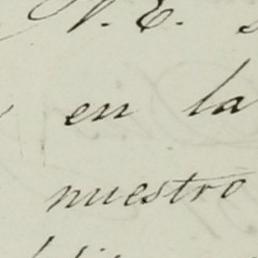 N. E.
en la
nuestro